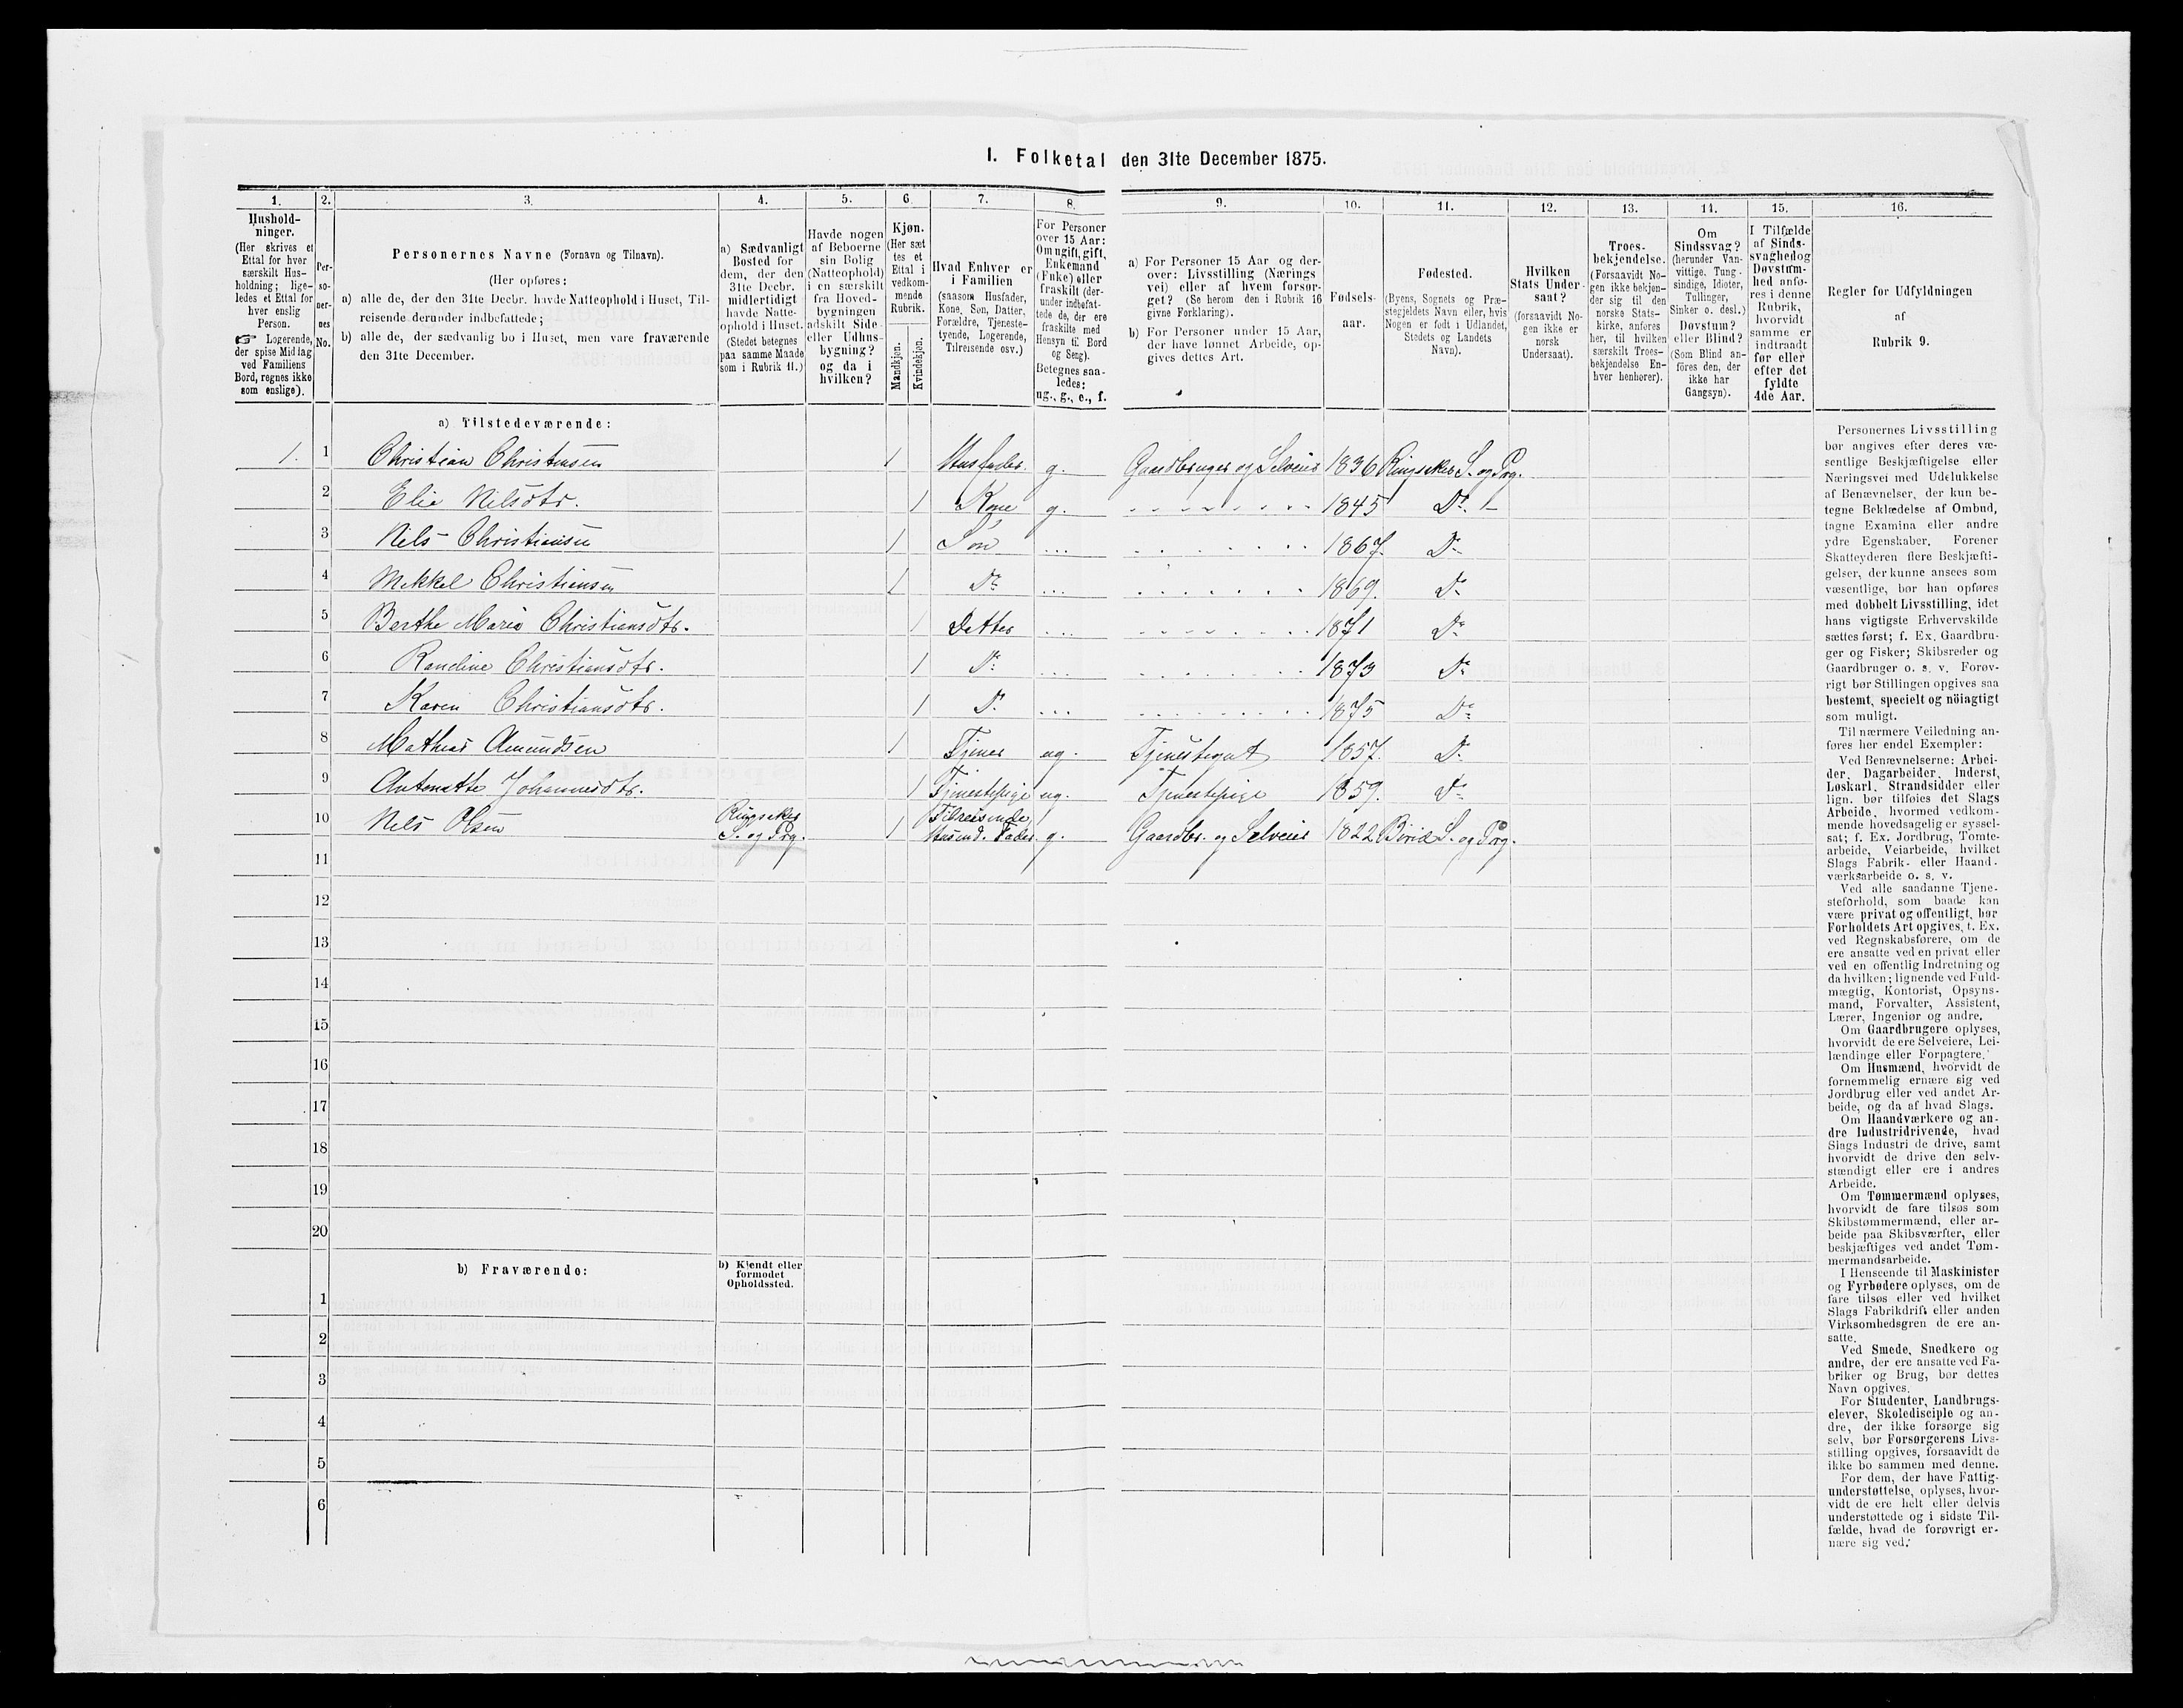 1. Folketal den 31te December 1875.
1. 2. 3. 4. 5. 6. 7. 8. 9. 10. 11. 12. 13. 14. 15. 16.
Hushold-
ninger.
(Her skrives et
Ettal for hver
særskilt Hus-
holdning; lige-
ledes et Ettal for
hver enslig
Person.
☞ Logerende,
der spise Middag
ved Familiens
Bord, regnes ikke
som enslige).
Per-
so-
ner-
nes
No.
Personernes Navne (Fornavn og Tilnavn).
(Her opføres:
a) alle de, der den 31te Decbr. havde Natteophold i Huset, Til-
reisende derunder indbefattede;
b) alle de, der sædvanlig bo i Huset, men vare fraværende
den 31te December.
a) Sædvanligt
Bosted for
dem, der den
31te Decbr.
midlertidigt
havde Natte-
ophold i Huset.
(Stedet betegnes
paa samme Maade
som i Rubrik 11.)
Havde nogen
af Beboerne
sin Bolig
(Natteophold)
i en særskilt
fra Hoved-
bygningen
adskilt Side-
eller Udhus-
bygning?
og da i
hvilken?
Kjøn.
(Her sæt
tes et
Ettal i
vedkom-
mende
Rubrik.
Mandkjøn.
Kvindekjøn.
Hvad Enhver er
i Familien
(saasom Husfader,
Kone, Søn, Datter,
Forældre, Tjeneste-
tyende, Logerende,
Tilreisende osv.)
For Personer
over 15 Aar:
Om ugift, gift,
Enkemand
(Enke) eller
fraskilt (der-
under indbefat-
tede de, der ere
fraskilte med
Hensyn til Bord
og Seng).
Betegnes saa-
ledes:
ug., g., e., f.
a) For Personer 15 Aar og der-
over: Livsstilling (Nærings
vei) eller af hvem forsør-
get? (Se herom den i Rubrik 16
givne Forklaring).
b) For Personer under 15 Aar,
der have lønnet Arbeide, op-
gives dettes Art.
Fødsels-
aar.
Fødested.
(Byens, Sognets og Præ-
stegjeldets Navn eller, hvis
Nogen er født i Udlandet,
Stedets og Landets
Navn).
Hvilken
Stats Under-
saat?
(forsaavidt No-
gen ikke er
norsk
Undersaat).
Troes-
bekjendelse.
(Forsaavidt No-
gen ikke bekjen-
der sig til den
norske Stats-
kirke, anføres
her, til hvilken
særskilt Troes-
bekjendelse En-
hver henhører).
Om
Sindssvag?
(herunder Van-
vittige, Tung-
sindige, Idioter,
Tullinger,
Sinker o. desl.)
Døvstum?
eller Blind?
(Som Blind an-
føres den, der
ikke har
Gangsyn).
I Tilfælde
af Sinds-
svaghed og
Døvstum-
hed anfø-
res i denne
Rubrik,
hvorvidt
samme er
indtraadt
før eller
efter det
fyldte
4de Aar.
Regler for Udfyldningen
af
Rubrik 9.
a) Tilstedeværende:
1. 1 Christian Christensen 1 Husfader. g. Gaardbruger og Selveier 1836 Ringsaker S. og Prg.
2 Elie Nilsdtr. 1 Kone g. 1845 Do.
3 Nils Christiansen 1 Søn 1867. Do
4 Mekkel Christiansen 1 Do 1869. Do
5 Berthe Maria Christiansdtr. 1 Datter 1871 Do
6 Randine Christiansdtr. 1 Do 1873 Do
7 Karen Christiansdtr. 1 Do 1875 Do
8 Mathias Amundsen 1 Tjener ug. Tjenestegut 1857. Do
9 Antonette Johannesdtr. 1 Tjenestepige ug. Tjenestepige 1859. Do
10 Nils Olsen Ringsaker S. og Prg. 1 Tilreisende Husmd. Fader. g. Gaardbr. og Selveier 1822 Birid S. og Prg.
11
12
13
14
15
16
17
18
19
20
b) Fraværende:
b) Kjendt eller
formodet
Opholdssted.
1
2
3
4
5
6
Personernes Livsstilling
bør angives efter deres væ-
sentlige Beskjæftigelse eller
Næringsvei med Udelukkelse
af Benævnelser, der kun be-
tegne Beklædelse af Ombud,
tagne Examina eller andre
ydre Egenskaber. Forener
Skatteyderen flere Beskjæfti-
gelser, der kunne ansees som
væsentlige, bør han opføres
med dobbelt Livsstilling, idet
hans vigtigste Erhvervskilde
sættes først; f. Ex. Gaardbru-
ger og Fisker; Skibsreder og
Gaardbruger o. s. v. Forøv-
rigt bør Stillingen opgives saa
bestemt, specielt og nöiagtigt
som muligt.
Til nærmere Veiledning an-
føres her endel Exempler:
Ved Benævnelserne: Arbei-
der, Dagarbeider, Inderst,
Løskarl, Strandsidder eller
lign. bør tilføies det Slags
Arbeide, hvormed vedkom-
mende hovedsagelig er syssel-
sat; f. Ex. Jordbrug, Tømte-
arbeide, Veiarbeide, hvilket
Slags Fabrik- eller Haand-
værksarbeide o. s. v.
Ved alle saadanne Tjene-
steforhold, som baade kan
være privat og offentligt, bør
Forholdets Art opgives, t. Ex.
ved Regnskabsførere, om de
ere ansatte ved en privat eller
ved en offentlig Indretning og
da hvilken; lignende ved Fuld-
mægtig, Kontorist, Opsyns-
mand, Forvalter, Assistent,
Lærer, Ingeniør og andre.
Om Gaardbrugere oplyses,
hvorvidt de ere Selveiere, Lei-
lændinge eller Forpagtere.
Om Husmænd, hvorvidt de
fornemmelig ernære sig ved
Jordbrug eller ved andet Ar-
beide, og da af hvad Slags.
Om Haandværkere og an-
dre Industridrivende, hvad
Slags Industri de drive, samt
hvorvidt de drive den selv-
stændigt eller ere i andres
Arbeide.
Om Tømmermænd oplyses,
hvorvidt de fare tilsøs som
Skibstømmermænd, eller ar-
beide paa Skibsværfter, eller
beskjæftiges ved andet Tøm-
mermandsarbeide.
I Henseende til Maskinister
og Fyrbødere oplyses, om de
fare tilsøs eller ved hvilket
Slags Fabrikdrift eller anden
Virksomhedsgren de ere an-
satte.
Ved Smede, Snedkere og
andre, der ere ansatte ved Fa-
briker og Brug, bør dettes
Navn opgives.
For Studenter, Landbrugs-
elever, Skoledisciple og an-
dre, der ikke forsørge sig
selv, bør Forsørgerens Livs-
stilling opgives, forsaavidt de
ikke bo sammen med denne.
For dem, der have Fattig-
understøttelse, oplyses, hvor-
vidt de ere helt eller delvis
understøttede og i sidste Til-
fælde, hvad de forøvrigt er-
nære sig ved.